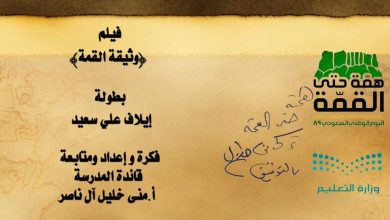 فيلم
﴿وثيقة القمة﴾
بطولة
إيلاف علي سعيد
فكرة و إعداد ومتابعة
قائدة المدرسة
أ.منى خليل آل ناصر
همّة حتى
القمّة
اليوم الوطني السعودي ٨٩
وزارة التعليم
همة
حتى القمة
بالتوفيق